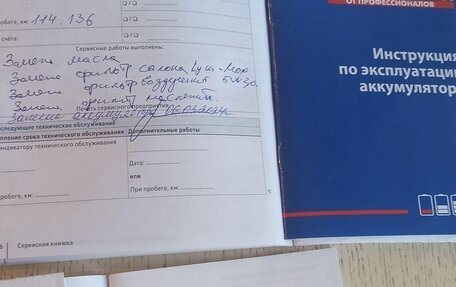 ОТ ПРОФЕССИОНАЛОВ
робеге, км: 114.136
счёта:
Сервисные работы выполнены:
Замена масла
Замена фильтр салона
Замена фильтр воздушный 5W30
Замена фильтр масленный
Печать сервисного предприятия
Замена аккумулятор 06.03.2024г.
следующее техническое обслуживание
пление срока технического обслуживания
Дополнительные работы
индикатору технического обслуживания
Дата:
или
робеге, км:
При пробеге, км:
6
Сервисная книжка
Инструкция
по эксплуатации
аккумулятор